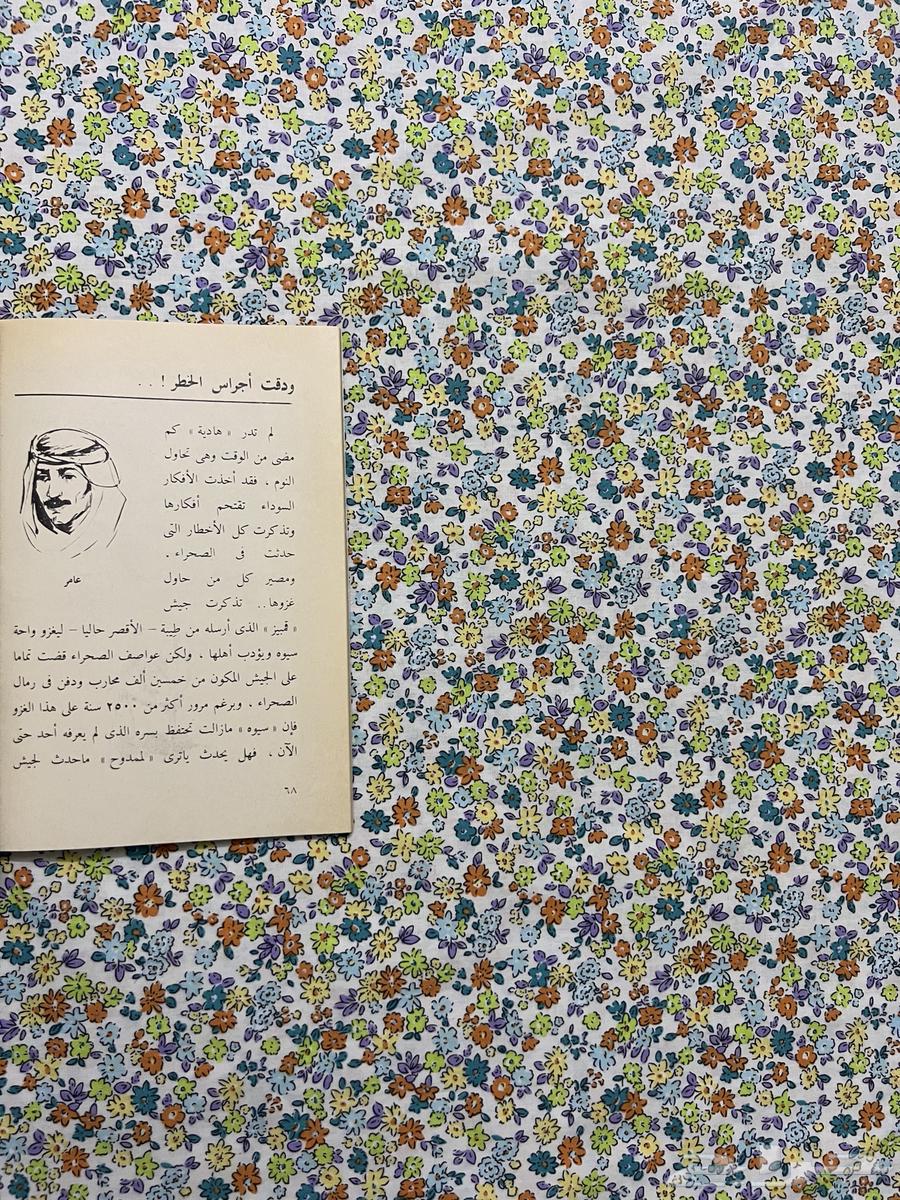 ودقت أجراس الخطر ! . .
لم تدر « هادية » كم
مضى من الوقت وهى تحاول
النوم ، فقد أخذت الأفكار
السوداء تقتحم أفكارها
وتذكرت كل الأخطار التى
حدثت فى الصحراء .
ومصير كل من حاول
غزوها.. تذكرت جيش
عامر
« قمبيز » الذى أرسله من طيبة – الأقصر حاليا – ليغزو واحة
سيوه ويؤدب أهلها . ولكن عواصف الصحراء قضت تماما
على الجيش المكون من خمسين ألف محارب ودفن فى رمال
الصحراء . وبرغم مرور أكثر من ٢٥٠٠ سنة على هذا الغزو
فإن « سيوه » مازالت تحتفظ بسره الذى لم يعرفه أحد حتى
الآن . فهل يحدث ياترى « لممدوح » ماحدث لجيش
٦٨